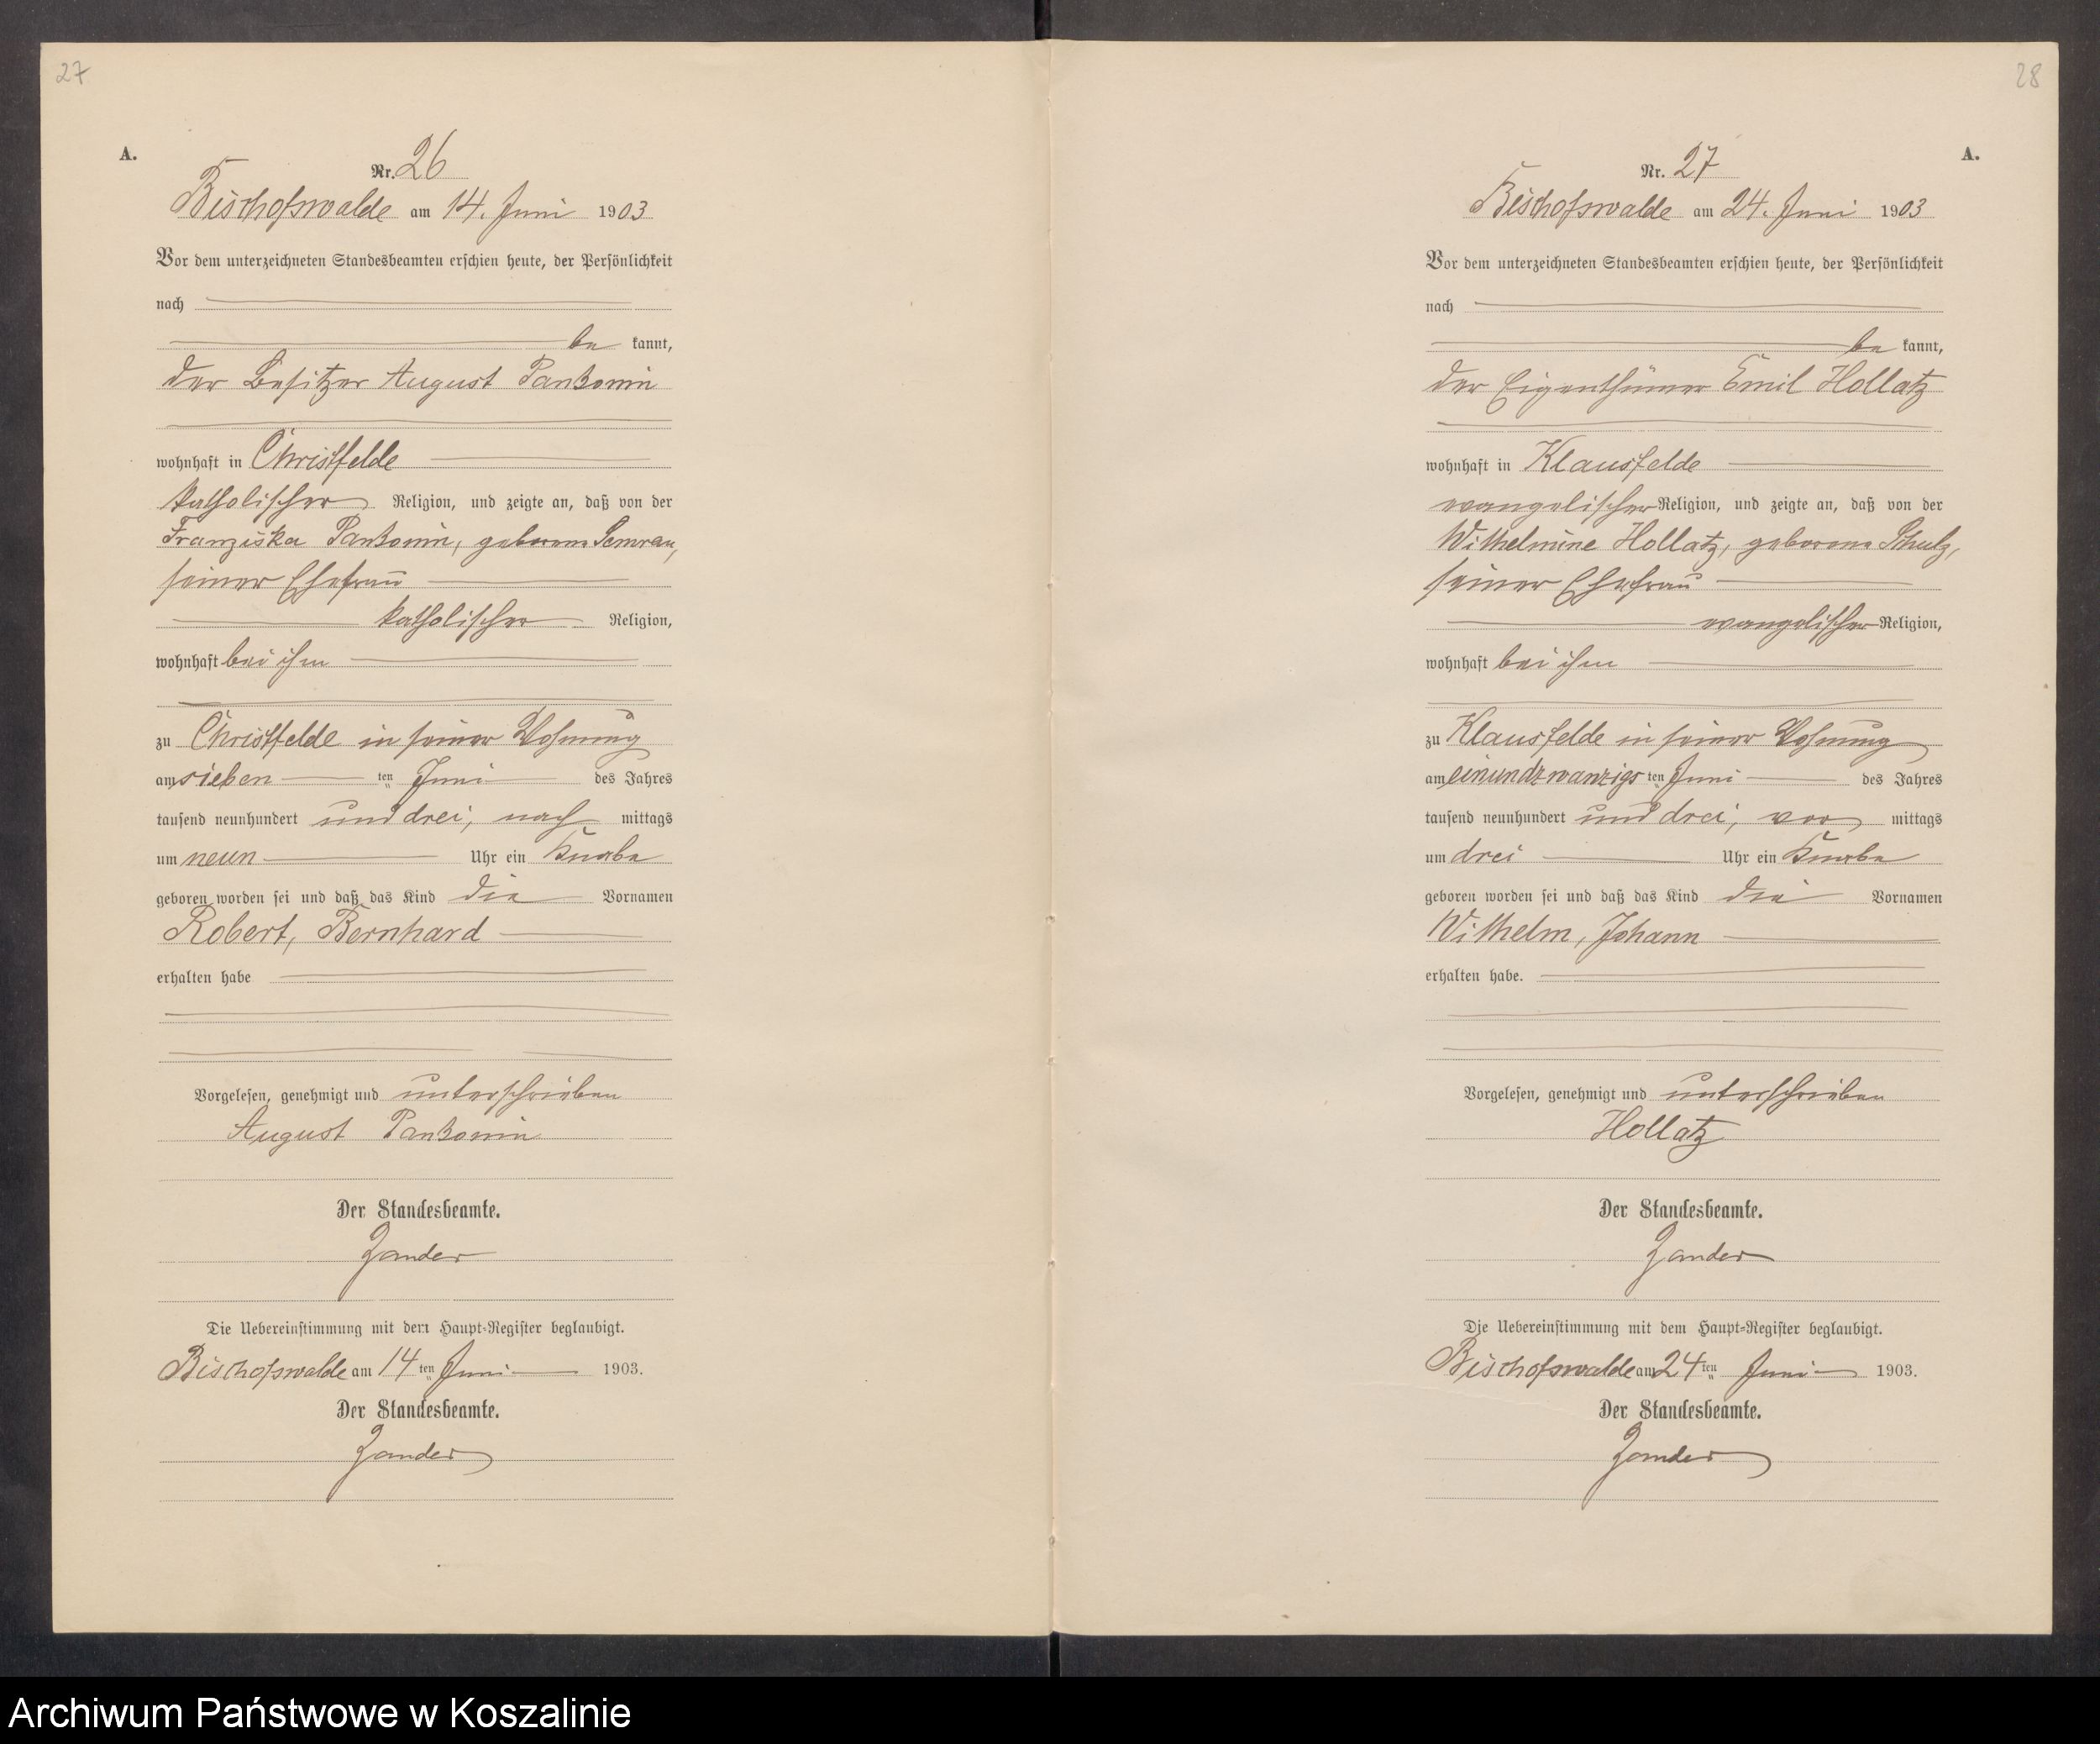 27
A.
Nr. 26
Bischofswalde am 14. Juni 1903
Vor dem unterzeichneten Standesbeamten erschien heute, der Persönlichkeit
nach
be kannt,
der Besitzer August Pankonin
wohnhaft in Christfelde
katholischer Religion, und zeigte an, daß von der
Franziska Pankonin, geborene Semrau,
seiner Ehefrau
katholischer Religion,
wohnhaft bei ihm
zu Christfelde in seiner Wohnung
am sieben ten Juni des Jahres
tausend neunhundert und drei, nach mittags
um neun Uhr ein Knabe
geboren worden sei und daß das Kind die Vornamen
Robert, Bernhard
erhalten habe
Vorgelesen, genehmigt und unterschrieben
August Pankonin
Der Standesbeamte.
Zander
Die Uebereinstimmung mit dem Haupt-Register beglaubigt.
Bischofswalde am 14 ten Juni 1903.
Der Standesbeamte.
Zander
28
A.
Nr. 27
Bischofswalde am 24. Juni 1903
Vor dem unterzeichneten Standesbeamten erschien heute, der Persönlichkeit
nach
be kannt,
der Eigenthümer Emil Hollatz
wohnhaft in Klausfelde
evangelischer Religion, und zeigte an, daß von der
Wilhelmine Hollatz, geborene Schulz,
seiner Ehefrau
evangelischer Religion,
wohnhaft bei ihm
zu Klausfelde in seiner Wohnung
am einundzwanzigs ten Juni des Jahres
tausend neunhundert und drei, vor mittags
um drei Uhr ein Knabe
geboren worden sei und daß das Kind die Vornamen
Wilhelm, Johann
erhalten habe.
Vorgelesen, genehmigt und unterschrieben
Hollatz
Der Standesbeamte.
Zander
Die Uebereinstimmung mit dem Haupt-Register beglaubigt.
Bischofswalde am 24 ten Juni 1903.
Der Standesbeamte.
Zander
Archiwum Państwowe w Koszalinie